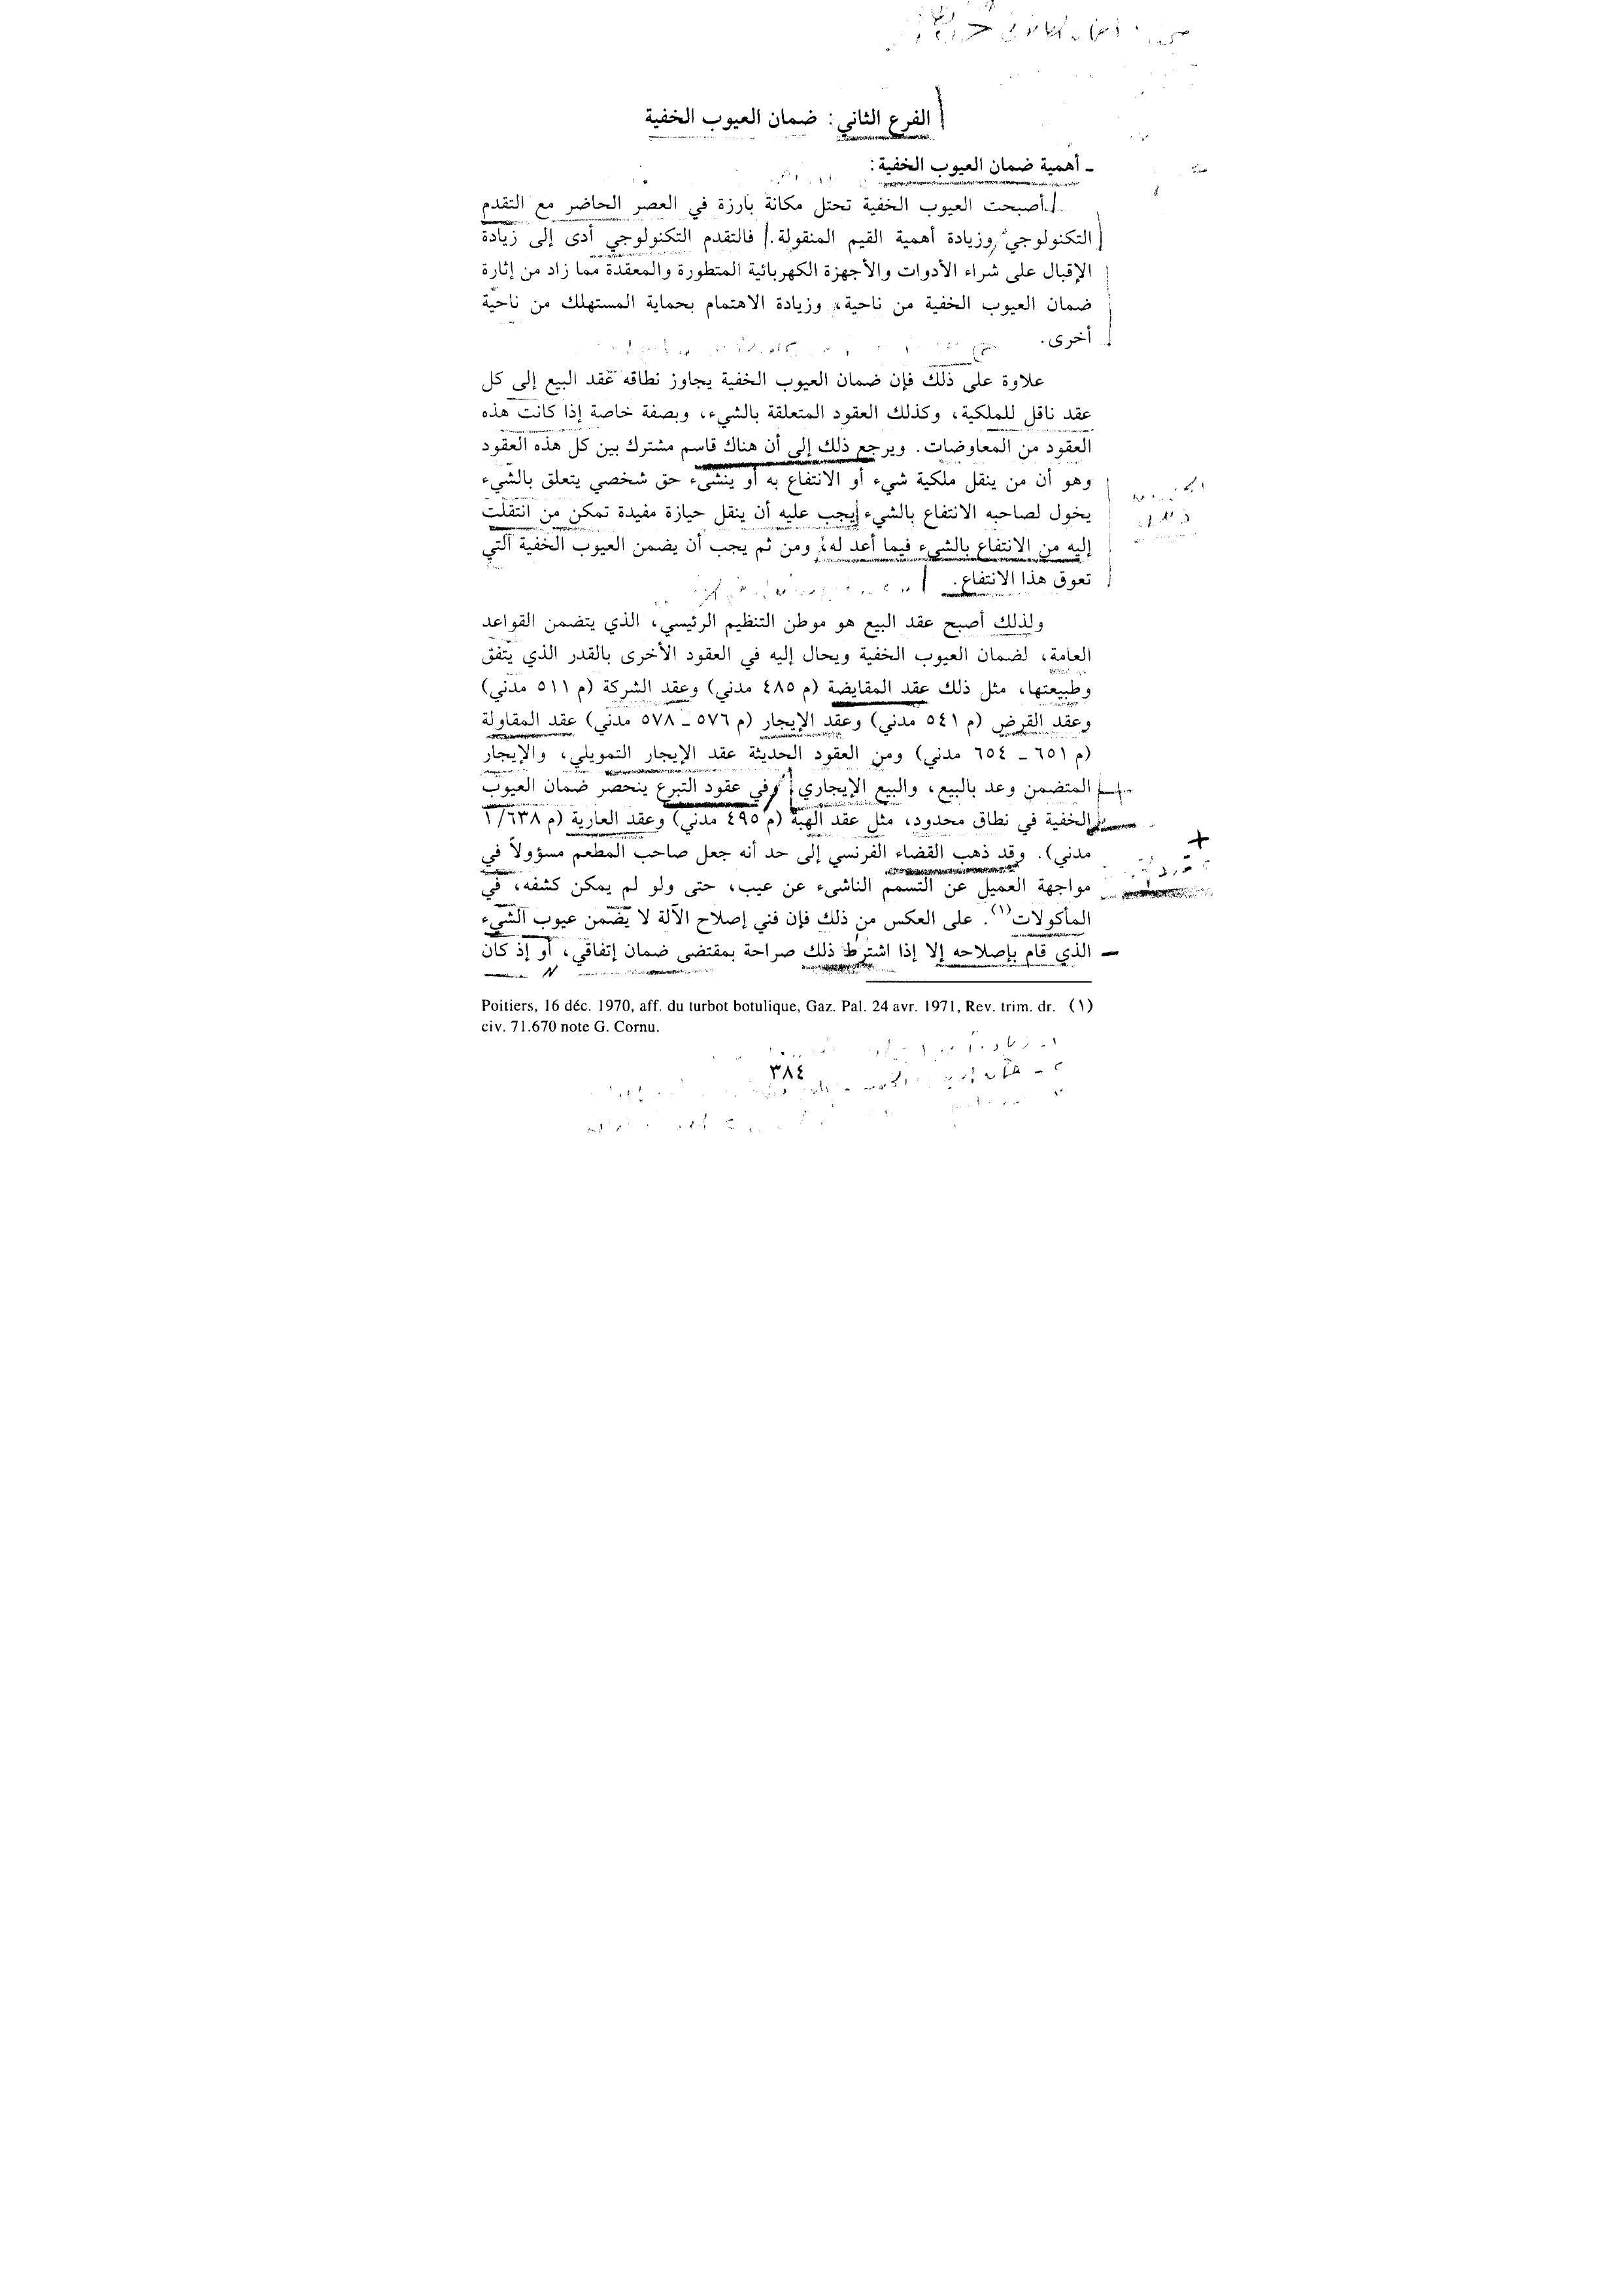 الفرع الثاني: ضمان العيوب الخفية
ـ أهمية ضمان العيوب الخفية:
أصبحت العيوب الخفية تحتل مكانة بارزة في العصر الحاضر مع التقدم
التكنولوجي وزيادة أهمية القيم المنقولة. فالتقدم التكنولوجي أدى إلى زيادة
الإقبال على شراء الأدوات والأجهزة الكهربائية المتطورة والمعقدة مما زاد من إثارة
ضمان العيوب الخفية من ناحية، وزيادة الاهتمام بحماية المستهلك من ناحية
أخرى.
علاوة على ذلك فإن ضمان العيوب الخفية يجاوز نطاقه عقد البيع إلى كل
عقد ناقل للملكية، وكذلك العقود المتعلقة بالشيء، وبصفة خاصة إذا كانت هذه
العقود من المعاوضات. ويرجع ذلك إلى أن هناك قاسم مشترك بين كل هذه العقود
وهو أن من ينقل ملكية شيء أو الانتفاع به أو ينشىء حق شخصي يتعلق بالشيء
يخول لصاحبه الانتفاع بالشيء يجب عليه أن ينقل حيازة مفيدة تمكن من انتقلت
إليه من الانتفاع بالشيء فيما أعد له، ومن ثم يجب أن يضمن العيوب الخفية التي
تعوق هذا الانتفاع.
ولذلك أصبح عقد البيع هو موطن التنظيم الرئيسي، الذي يتضمن القواعد
العامة، لضمان العيوب الخفية ويحال إليه في العقود الأخرى بالقدر الذي يتفق
وطبيعتها، مثل ذلك عقد المقايضة (م ٤٨٥ مدني) وعقد الشركة (م ٥١١ مدني)
وعقد القرض (م ٥٤١ مدني) وعقد الإيجار (م ٥٧٦ ـ ٥٧٨ مدني) عقد المقاولة
(م ٦٥١ ـ ٦٥٤ مدني) ومن العقود الحديثة عقد الإيجار التمويلي، والإيجار
المتضمن وعد بالبيع، والبيع الإيجاري وفي عقود التبرع ينحصر ضمان العيوب
الخفية في نطاق محدود، مثل عقد الهبة (م ٤٩٥ مدني) وعقد العارية (م ١/٦٣٨
مدني). وقد ذهب القضاء الفرنسي إلى حد أنه جعل صاحب المطعم مسؤولاً في
مواجهة العميل عن التسمم الناشىء عن عيب، حتى ولو لم يمكن كشفه، في
المأكولات(١). على العكس من ذلك فإن فني إصلاح الآلة لا يضمن عيوب الشيء
الذي قام بإصلاحه إلا إذا اشترط ذلك صراحة بمقتضى ضمان إتفاقي، أو إذ كان
(١) Poitiers, 16 déc. 1970, aff. du turbot botulique, Gaz. Pal. 24 avr. 1971, Rev. trim. dr.
civ. 71.670 note G. Cornu.
٣٨٤